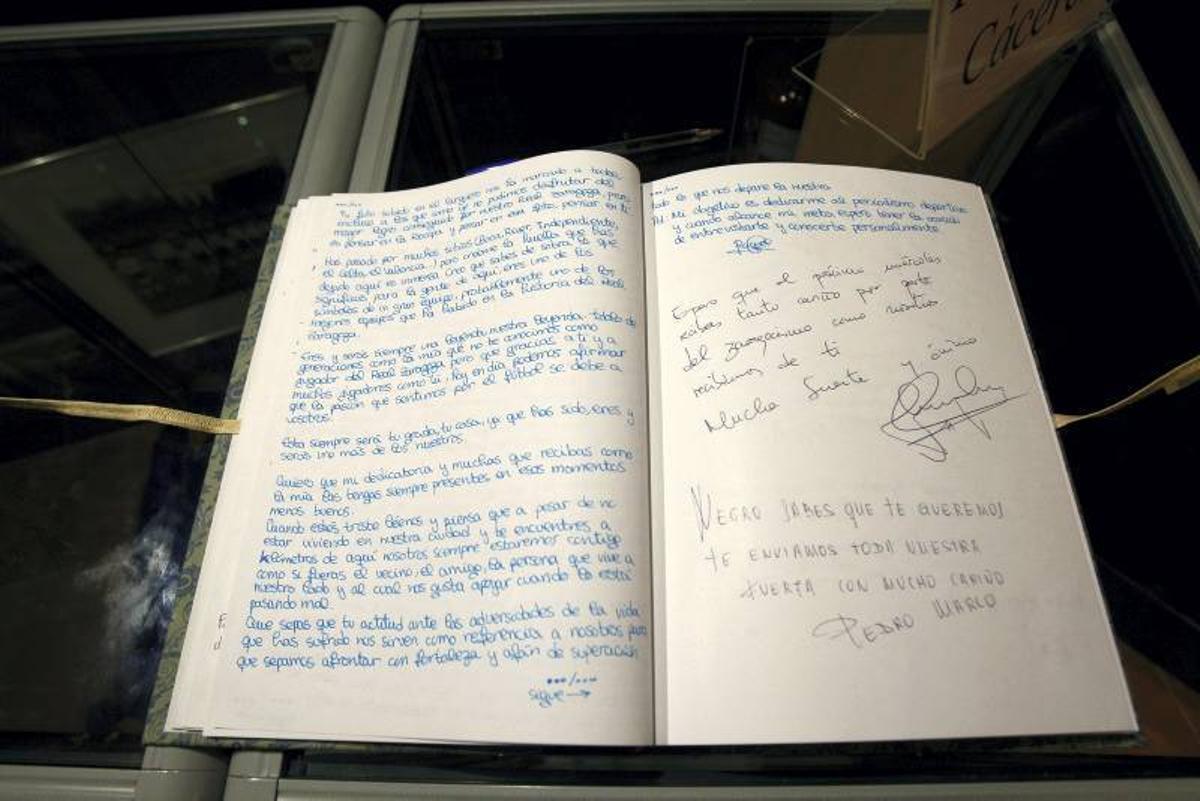 Cácere
•••/•••
Tu foto subido en el larguero nos ha marcado a todos
incluso a los que como yo no pudimos disfrutar del
mayor logro conseguido por nuestro Real Zaragoza, pero
es pensar en la Recopa y pensar en esa foto, pensar en ti.
Has pasado por muchos sitios (Boca, River, Independiente,
el Celta, el Valencia...) pero créeme la huella que has
dejado aquí es inmensa. Creo que sabes de sobra lo que
significas para la gente de aquí, eres uno de los
símbolos de un gran equipo, probablemente uno de los
mejores equipos que ha habido en la historia del Real
Zaragoza.
Eres y serás siempre una leyenda, nuestra leyenda. Todas las
generaciones como la mía que no te conocimos como
jugador del Real Zaragoza pero que gracias a ti y a
muchos jugadores como tú, hoy en día podemos afirmar
que la pasión que sentimos por el fútbol se debe a
vosotros.
Esta siempre será tu grada, tu casa, ya que has sido, eres y
serás uno más de los nuestros.
Quiero que mi dedicatoria y muchas que recibas como
la mía las tengas siempre presentes en esos momentos
menos buenos.
Cuando estés triste léenos y piensa que a pesar de no
estar viviendo en nuestra ciudad y te encuentres a
kilómetros de aquí nosotros siempre estaremos contigo
como si fueras el vecino, el amigo, la persona que vive a
nuestro lado y al cual nos gusta apoyar cuando lo está
pasando mal.
Que sepas que tu actitud ante las adversidades de la vida
que has sufrido nos sirven como referencia a nosotros para
que sepamos afrontar con fortaleza y afán de superación
•••/•••
sigue →
•••/•••
todo lo que nos depare la nuestra.
Pd: Mi objetivo es dedicarme al periodismo deportivo
y cuando alcance mi meta, espero tener la ocasión
de entrevistarte y conocerte personalmente.
Espero que el próximo miércoles
recibas tanto cariño por parte
del zaragocismo como nosotros
recibimos de ti
Mucha suerte y ánimo
NEGRO SABES QUE TE QUEREMOS
TE ENVIAMOS TODA NUESTRA
FUERZA CON MUCHO CARIÑO
PEDRO MARCO